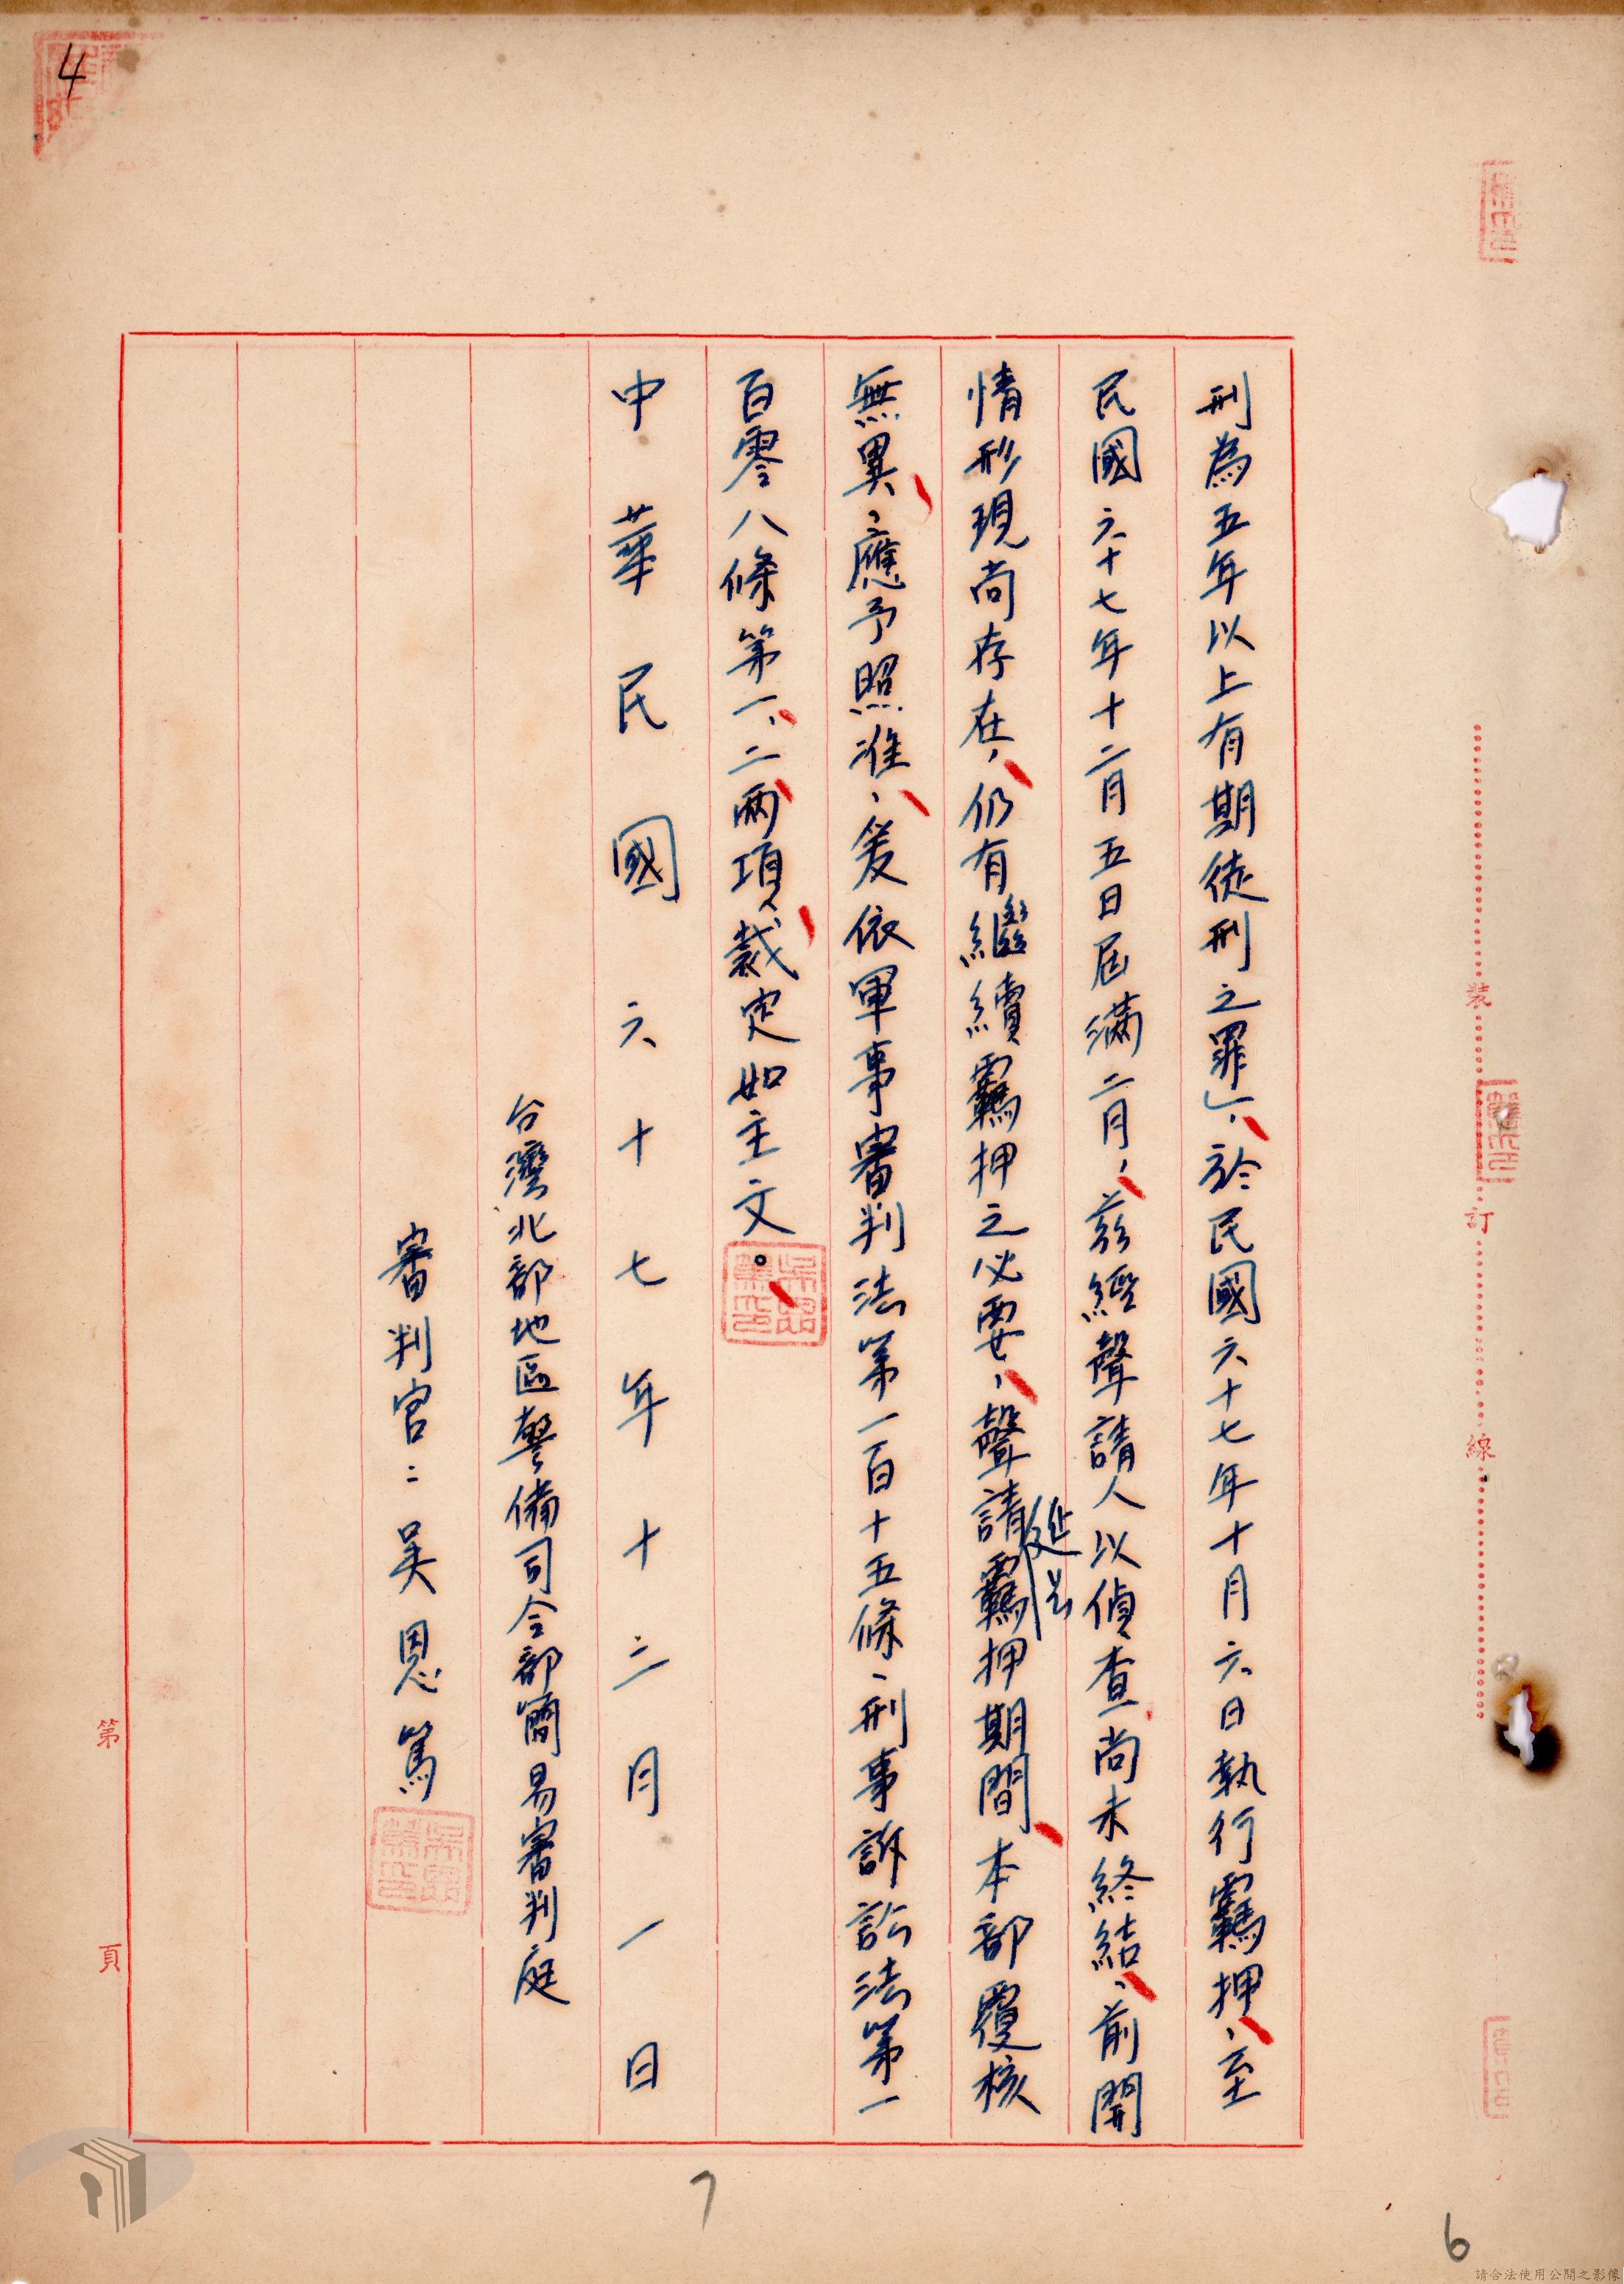 4
刑為五年以上有期徒刑之罪」，於民國六十七年十月六日執行羈押，至
民國六十七年十二月五日屆滿二月，茲經聲請人以偵查尚未終結，前開
情形現尚存在，仍有繼續羈押之必要，聲請延長羈押期間，本部覆核
無異，應予照准，爰依軍事審判法第一百十五條、刑事訴訟法第一
百零八條第一、二兩項，裁定如主文。
中華民國六十七年十二月一日
台灣北部地區警備司令部簡易審判庭
審判官：吳恩篤
裝
訂
線
第 頁
7
6
請合法使用公開之影像